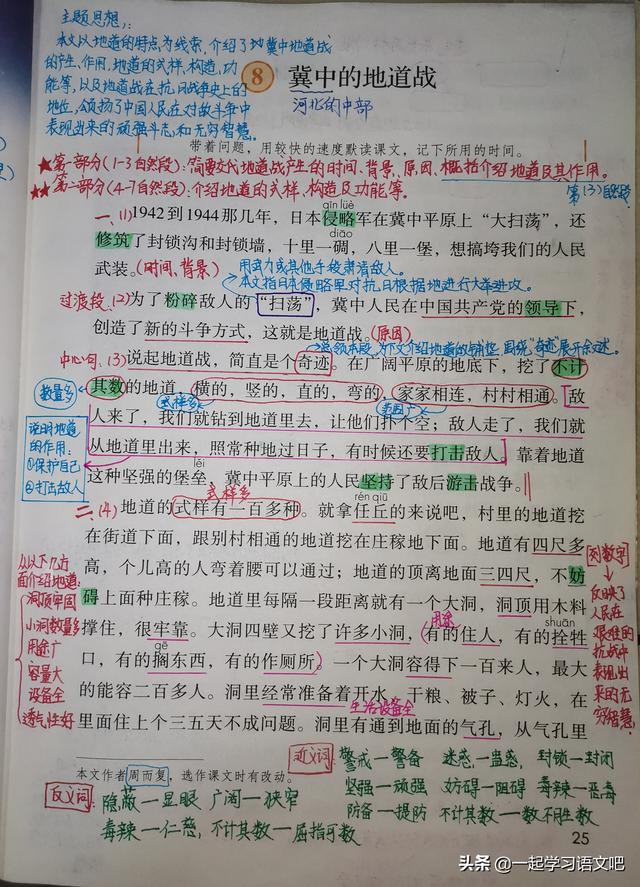 主题思想:
本文以地道的特点为线索,介绍了冀中地道战
的产生、作用,地道的式样、构造、功
能等,以及地道战在抗日战争史上的
地位,颂扬了中国人民在对敌斗争中
表现出来的顽强斗志和无穷智慧。
8 冀中的地道战
河北的中部
带着问题,用较快的速度默读课文,记下所用的时间。
★第一部分(1-3自然段):简要交代地道战产生的时间、背景、原因,概括介绍地道及其作用。
第(3)自然段
★★第二部分(4-7自然段):介绍地道的式样、构造及功能等。
qīn lüè
一、(1) 1942到1944那几年,日本侵略军在冀中平原上“大扫荡”,还
diāo
修筑了封锁沟和封锁墙,十里一碉,八里一堡,想搞垮我们的人民
武装。(时间、背景)
用武力或其他手段肃清敌人。
本文指日本侵略军对抗日根据地进行大举进攻。
过渡段、(2)为了粉碎敌人的“扫荡”,冀中人民在中国共产党的领导下,
创造了新的斗争方式,这就是地道战。(原因)
总领本段,为下文介绍地道的铺垫,围绕“奇迹”展开叙述。
中心句、(3)说起地道战,简直是个奇迹。在广阔平原的地底下,挖了不计
数量多
其数的地道,横的,竖的,直的,弯的,家家相连,村村相通。敌
式样多
范围广
人来了,我们就钻到地道里去,让他们扑个空;敌人走了,我们就
从地道里出来,照常种地过日子,有时候还要打击敌人。靠着地道
说明地道
的作用:
①保护自己
②打击敌人
lěi
这种坚强的堡垒,冀中平原上的人民坚持了敌后游击战争。
式样多
rén qiū
二、(4)地道的式样有一百多种。就拿任丘的来说吧,村里的地道挖
在街道下面,跟别村相通的地道挖在庄稼地下面。地道有四尺多
高,个儿高的人弯着腰可以通过;地道的顶离地面三四尺,不妨
碍上面种庄稼。地道里每隔一段距离就有一个大洞,洞顶用木料
用途
shuān
撑住,很牢靠。大洞四壁又挖了许多小洞,有的住人,有的拴牲
gē
口,有的搁东西,有的作厕所。一个大洞容得下一百来人,最大
的能容二百多人。洞里经常准备着开水、干粮、被子、灯火,在
生活设备全
里面住上个三五天不成问题。洞里有通到地面的气孔,从气孔里
从以下几方
面介绍地道:
洞顶牢固
小洞数量多
用途广
容量大
设备全
透气性好
列数字
反映了
人民在
艰难的
抗战中
表现出
来的无
穷智慧
本文作者周而复,选作课文时有改动。
近义词: 警戒—警备 迷惑—蛊惑, 封锁—封闭
坚强—顽强 妨碍—阻碍 毒辣—恶毒
防备—提防 不计其数—数不胜数
反义词: 隐蔽—显眼 广阔—狭窄
毒辣—仁慈, 不计其数—屈指可数
25
头条 @一起学习语文吧